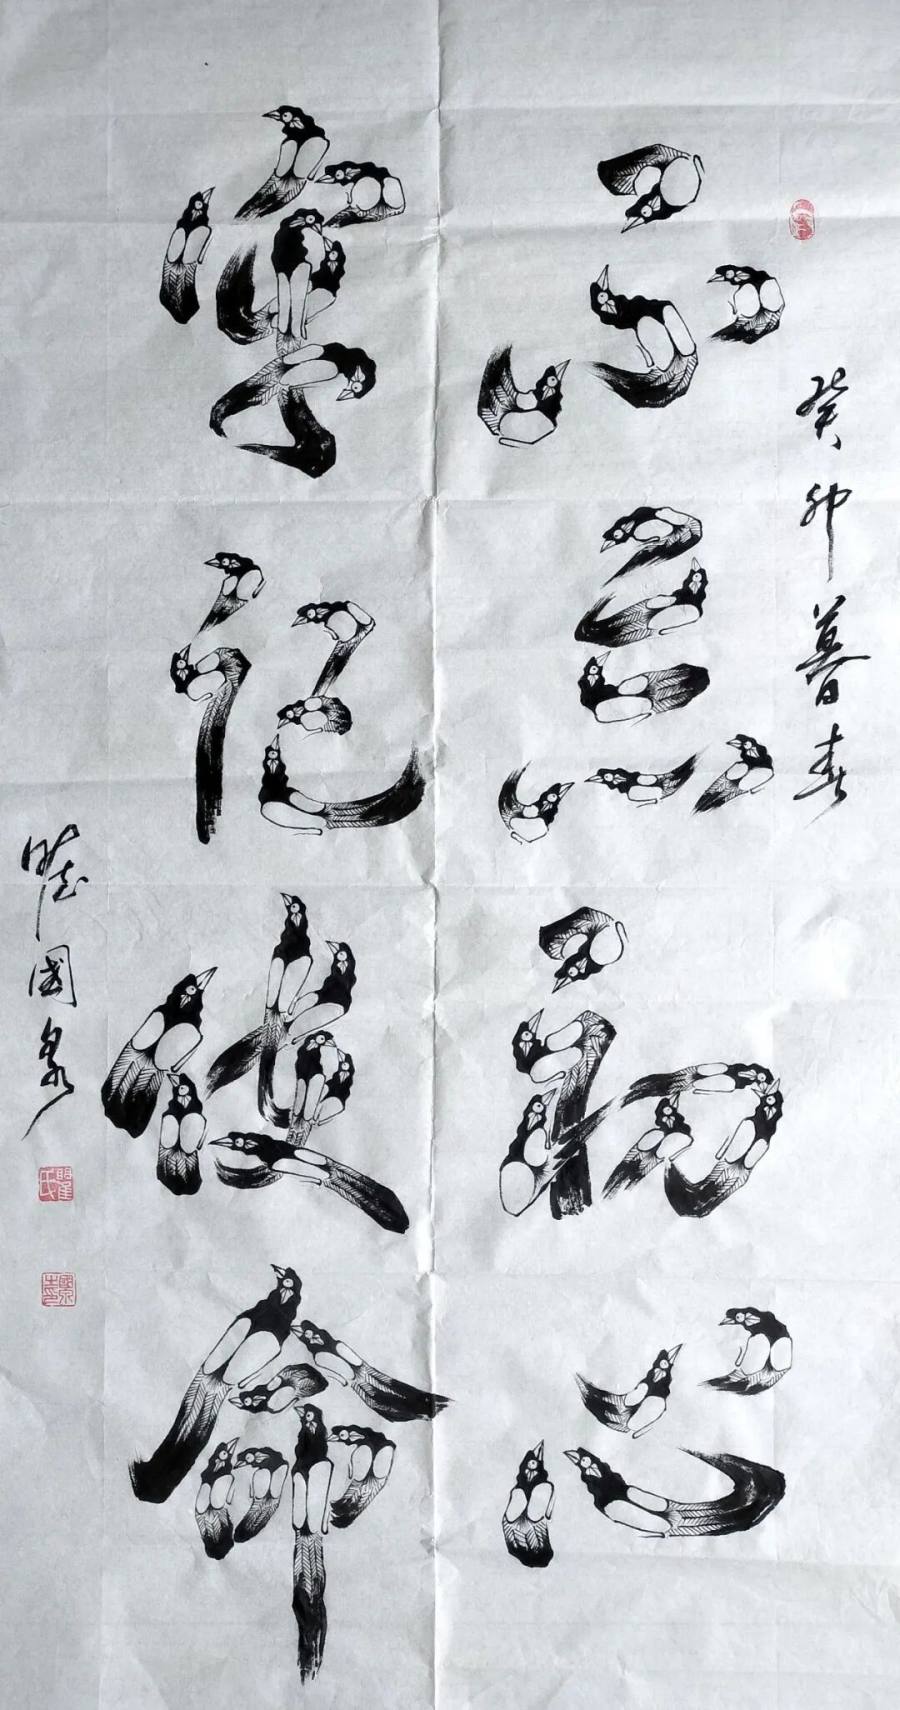 癸卯暮春
不忘初心
牢记使命
瞿国泉